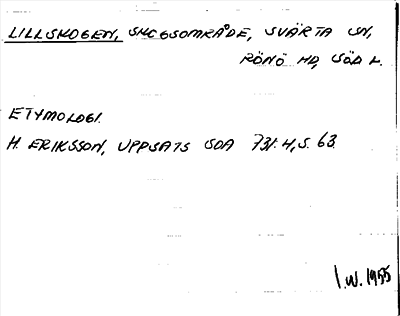 LILLSKOGEN, SKOGSOMRÅDE, SVÄRTA SN,
RÖNÖ HD, SÖD L.
ETYMOLOGI.
H. ERIKSSON, UPPSATS SOA 731:4, S. 63.
I.W. 1955